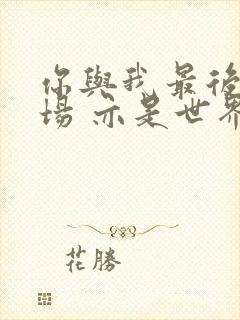 你與我 最後
場 亦是世界
花勝